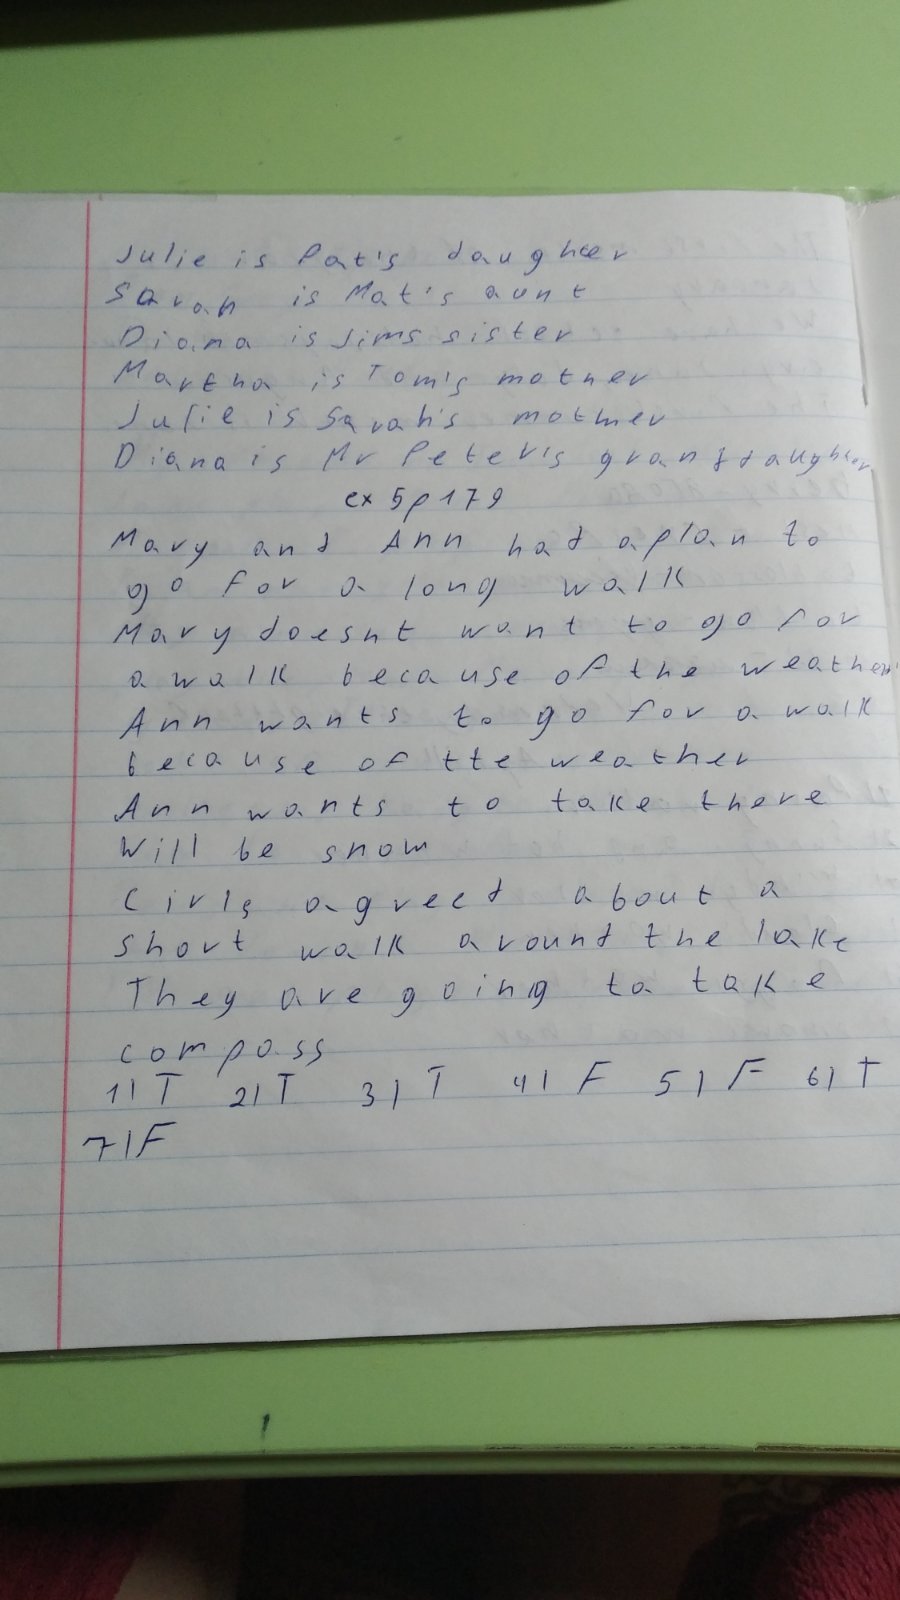 Julie is Pat's daughter
Sarah is Mat's aunt
Diana is Jims sister
Martha is Tom's mother
Julie is Sarah's mother
Diana is Mr Peter's granddaughter
ex 5p179
Mary and Ann had a plan to
go for a long walk
Mary doesnt want to go for
a walk because of the weather
Ann wants to go for a walk
because of tte weather
Ann wants to take there
Will be snow
Cirls agreed about a
short walk around the lake
They are going to take
compass
1) T 2) T 3) T 4) F 5) F 6) T
7) F